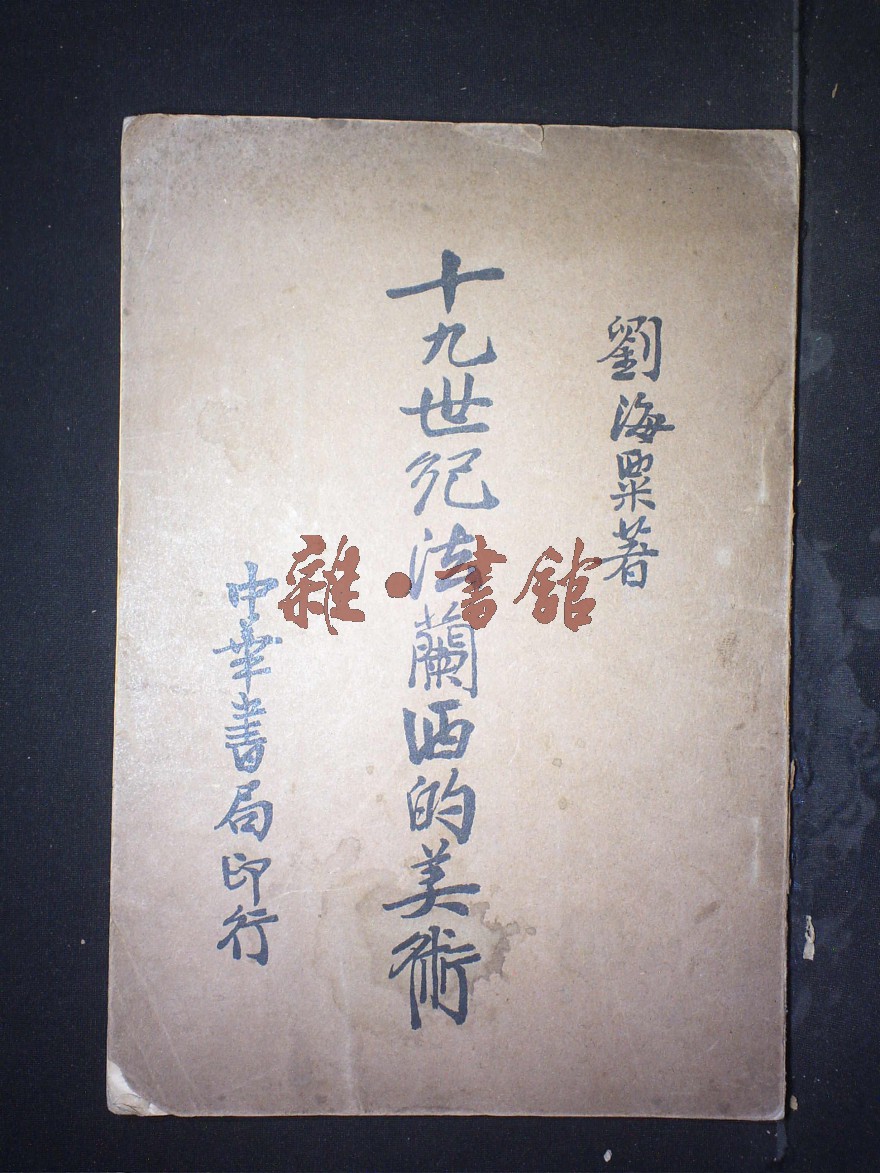 劉海粟著
十九世紀法蘭西的美術
中華書局印行
雜·書館